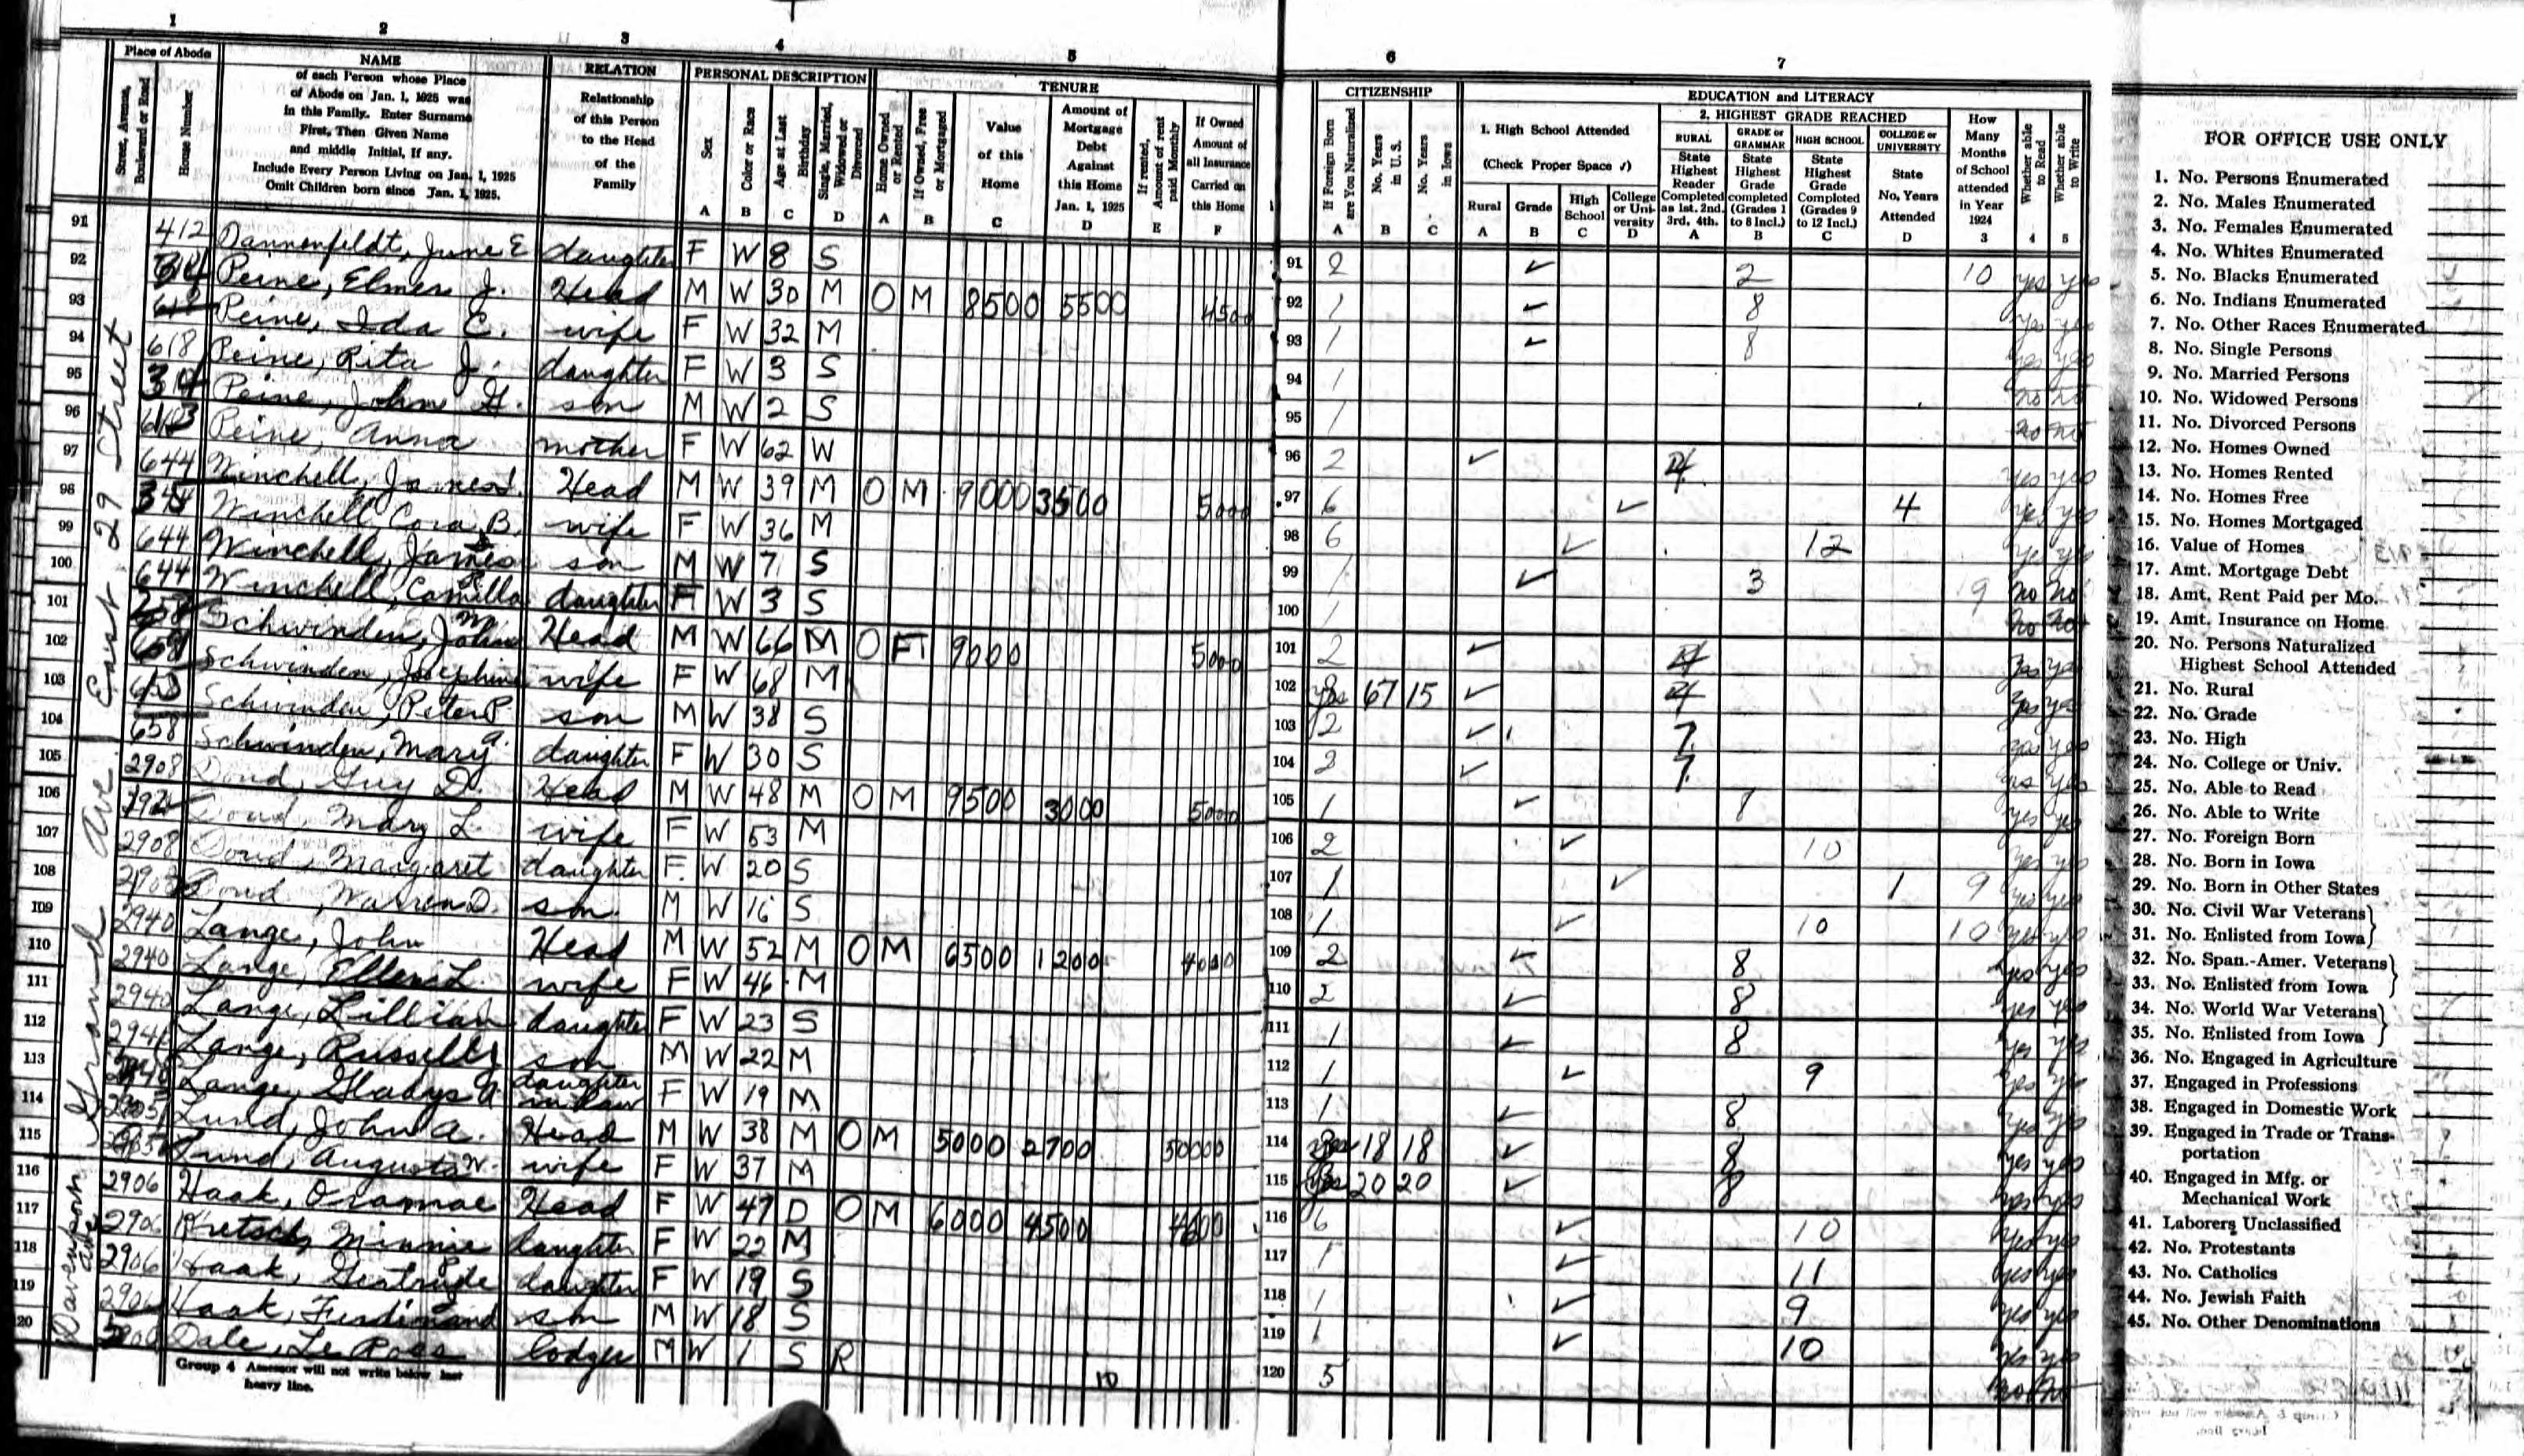 1 2 3 4 5 6 7
Place of Abode
Street, Avenue, Boulevard or Road
House Number
NAME
of each Person whose Place
of Abode on Jan. 1, 1925 was
in this Family. Enter Surname
First, Then Given Name
and middle Initial, If any.
Include Every Person Living on Jan. 1, 1925
Omit Children born since Jan. 1, 1925.
RELATION
Relationship
of this Person
to the Head
of the
Family
PERSONAL DESCRIPTION
Sex
Color or Race
Age at Last Birthday
Single, Married, Widowed or Divorced
A B C D
TENURE
Home Owned or Rented
If Owned, Free or Mortgaged
Value
of this
Home
Amount of
Mortgage
Debt
Against
this Home
Jan. 1, 1925
If rented, Amount of rent paid Monthly
If Owned
Amount of
all Insurance
Carried on
this Home
A B C D E F
CITIZENSHIP
If Foreign Born are You Naturalized
No. Years in U.S.
No. Years in Iowa
A B C
EDUCATION and LITERACY
1. High School Attended
(Check Proper Space ✓)
Rural Grade High School College or University
A B C D
2. HIGHEST GRADE REACHED
RURAL
State Highest Reader Completed as 1st. 2nd. 3rd, 4th.
A
GRADE or GRAMMAR
State Highest Grade completed (Grades 1 to 8 Incl.)
B
HIGH SCHOOL
State Highest Grade Completed (Grades 9 to 12 Incl.)
C
COLLEGE or UNIVERSITY
State No. Years Attended
D
How Many Months of School attended in Year 1924
3
Whether able to Read
4
Whether able to Write
5
East 29 Street
Grand Ave.
Davenport Ave
91 412 Dannenfeldt, June E daughter F W 8 S 91 2 ✓ 2 10 yes yes
92 Peine, Elmer J. Head M W 30 M O M 8500 5500 4500 92 1 ✓ 8 yes yes
93 Peine, Ida E. wife F W 32 M 93 1 ✓ 8 yes yes
94 618 Peine, Rita J. daughter F W 3 S 94 1 no no
95 Peine, John H. son M W 2 S 95 1 no no
96 Peine, Anna mother F W 62 W 96 2 ✓ 4 yes yes
97 644 Winchell, James Head M W 39 M O M 9000 3500 5000 97 6 ✓ 4 yes yes
98 Winchell, Cora B. wife F W 36 M 98 6 ✓ 12 yes yes
99 644 Winchell, James son M W 7 S 99 1 ✓ 3 9 no no
100 644 Winchell, Camilla daughter F W 3 S 100 1 no no
101 Schwinden, John M Head M W 66 M O F 9000 5000 101 2 ✓ 4 yes yes
102 Schwinden, Josephine wife F W 68 M 102 yes 67 15 ✓ 4 yes yes
103 Schwinden, Peter P. son M W 38 S 103 2 ✓ 7 yes yes
104 658 Schwinden, Mary A. daughter F W 30 S 104 2 ✓ 7 yes yes
105 2908 Doud, Guy D. Head M W 48 M O M 9500 3000 5000 105 1 ✓ 8 yes yes
106 Doud, Mary L. wife F W 53 M 106 2 ✓ 10 yes yes
107 2908 Doud, Margaret daughter F. W 20 S 107 1 ✓ 1 9 yes yes
108 2908 Doud, Warren D. son M W 16 S 108 1 ✓ 10 10 yes yes
109 2940 Lange, John Head M W 52 M O M 6500 1200 4000 109 2 ✓ 8 yes yes
110 2940 Lange, Ellen L. wife F W 46 M 110 2 ✓ 8 yes yes
111 2940 Lange, Lillian daughter F W 23 S 111 1 ✓ 8 yes yes
112 Lange, Russell son M W 22 M 112 1 ✓ 9 yes yes
113 Lange, Gladys daughter in law F W 19 M 113 1 ✓ 8 yes yes
114 Lund, John A. Head M W 38 M O M 5000 2700 114 18 18 ✓ 8 yes yes
115 Lund, Augusta W. wife F W 37 M 115 20 20 ✓ 8 yes yes
116 2906 Haak, Oramae Head F W 47 D O M 6000 4500 116 6 ✓ 10 yes yes
117 2906 Minnie daughter F W 22 M 117 1 ✓ 11 yes yes
118 2906 Haak, Gertrude daughter F W 19 S 118 1 ✓ 9 yes yes
119 2906 Haak, Ferdinand son M W 18 S 119 1 ✓ 10 yes yes
20 Dale, Le Ross lodger M W 1 S R 10 120 5 no no
Group 4 Assessor will not write below last
heavy line.
FOR OFFICE USE ONLY
1. No. Persons Enumerated
2. No. Males Enumerated
3. No. Females Enumerated
4. No. Whites Enumerated
5. No. Blacks Enumerated
6. No. Indians Enumerated
7. No. Other Races Enumerated
8. No. Single Persons
9. No. Married Persons
10. No. Widowed Persons
11. No. Divorced Persons
12. No. Homes Owned
13. No. Homes Rented
14. No. Homes Free
15. No. Homes Mortgaged
16. Value of Homes
17. Amt. Mortgage Debt
18. Amt. Rent Paid per Mo.
19. Amt. Insurance on Home
20. No. Persons Naturalized
Highest School Attended
21. No. Rural
22. No. Grade
23. No. High
24. No. College or Univ.
25. No. Able to Read
26. No. Able to Write
27. No. Foreign Born
28. No. Born in Iowa
29. No. Born in Other States
30. No. Civil War Veterans
31. No. Enlisted from Iowa
32. No. Span.-Amer. Veterans
33. No. Enlisted from Iowa
34. No. World War Veterans
35. No. Enlisted from Iowa
36. No. Engaged in Agriculture
37. Engaged in Professions
38. Engaged in Domestic Work
39. Engaged in Trade or Trans-
portation
40. Engaged in Mfg. or
Mechanical Work
41. Laborers Unclassified
42. No. Protestants
43. No. Catholics
44. No. Jewish Faith
45. No. Other Denominations